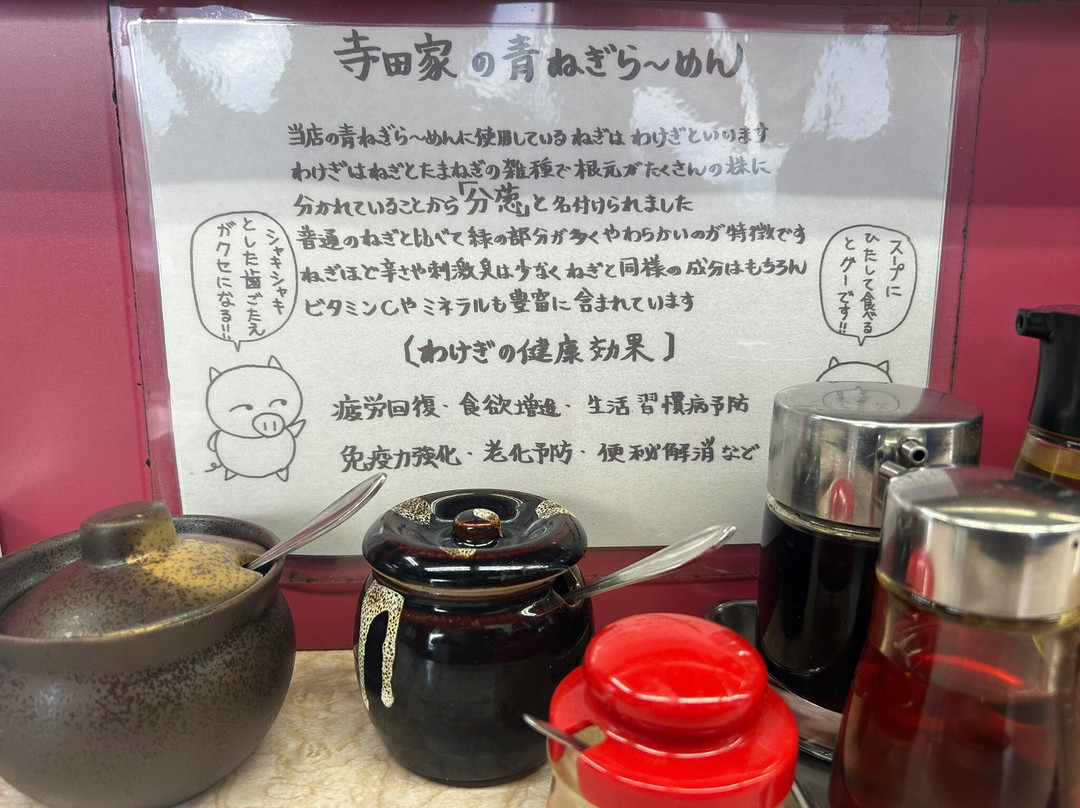 寺田家の青ねぎら～めん
当店の青ねぎら～めんに使用しているねぎは わけぎといいます
わけぎはねぎとたまねぎの雑種で根元がたくさんの株に
分かれていることから「分葱」と名付けられました
普通のねぎと比べて緑の部分が多くやわらかいのが特徴です
ねぎほど辛さや刺激臭は少なくねぎと同様の成分はもちろん
ビタミンCやミネラルも豊富に含まれています
シャキシャキ
とした歯ごたえ
がクセになる!!
スープに
ひたして食べる
とグーです!!
【わけぎの健康効果】
疲労回復・食欲増進・生活習慣病予防
免疫力強化・老化予防・便秘解消など